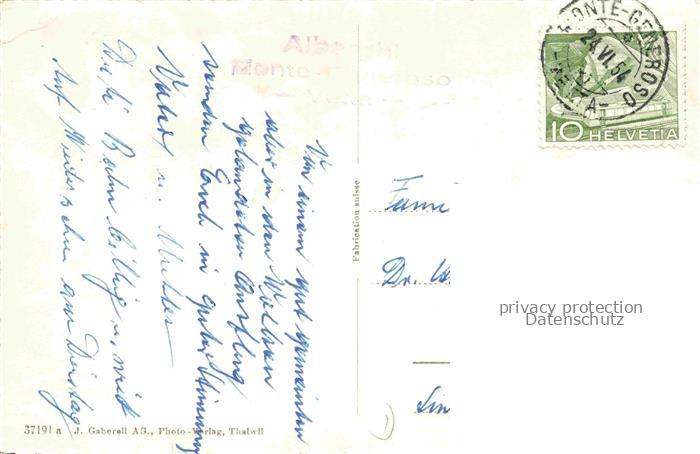 Albergo
Monte Generoso
Vetta
MONTE-GENEROSO
24.VI.54
VETTA
10 HELVETIA
Von einem gut gemeinten
aber in den Wolken
gelandeten Ausflug
senden Euch in guter Stimmung
Vater u. Mutter
Die Bahn billig u. nicht
Auf Wiedersehn am Dienstag
Fabrication suisse
Fami
Dr. W
privacy protection
Datenschutz
37191 a J. Gaberell AG., Photo-Verlag, Thalwil